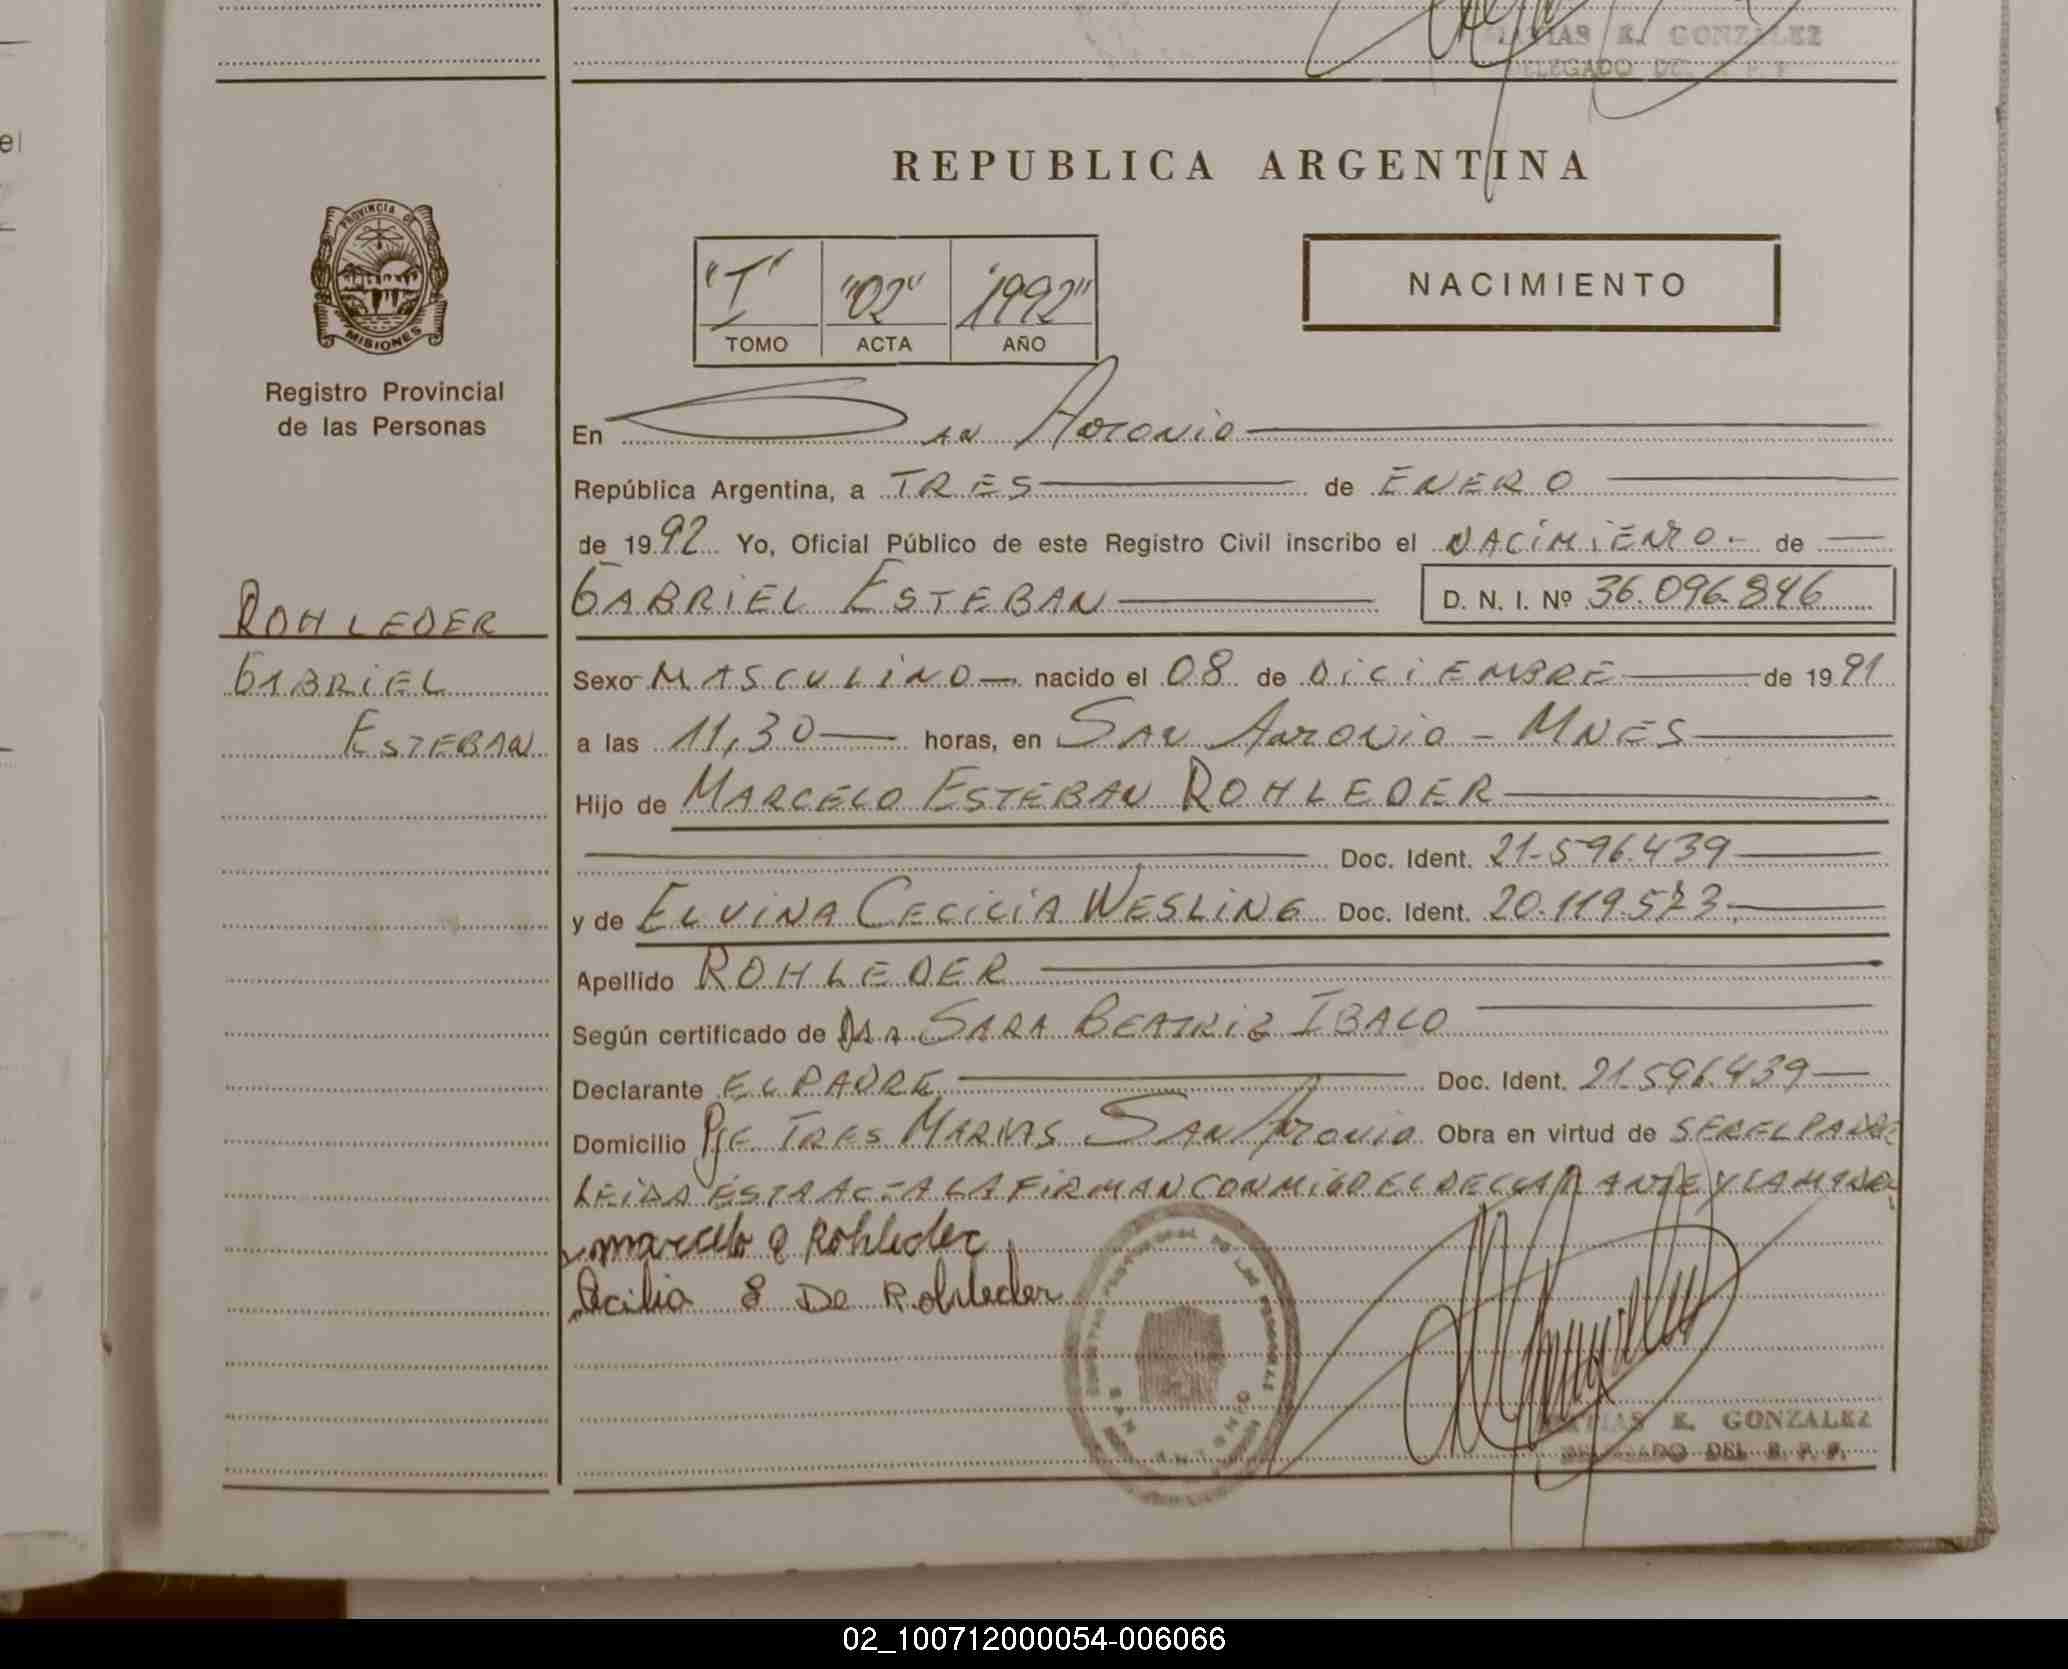 MATIAS E. GONZALEZ
DELEGADO DEL R. P. P.
el
REPUBLICA ARGENTINA
PROVINCIA DE
MISIONES
Registro Provincial
de las Personas
"I" "02" "1992"
TOMO ACTA AÑO
NACIMIENTO
En San Antonio
República Argentina, a TRES de ENERO
de 1992 Yo, Oficial Público de este Registro Civil inscribo el NACIMIENTO.- de
GABRIEL ESTEBAN D. N. I. Nº 36.096.846
ROHLEDER
GABRIEL
ESTEBAN
Sexo MASCULINO nacido el 08 de DICIEMBRE de 1991
a las 11,30 horas, en SAN ANTONIO - MNES
Hijo de MARCELO ESTEBAN ROHLEDER
Doc. Ident. 21.596.439
y de ELVINA CECILIA WESLING Doc. Ident. 20.119.573.
Apellido ROHLEDER
Según certificado de SARA BEATRIZ IBALO
Declarante EL PADRE Doc. Ident. 21.596.439
Domicilio Pje TRES MARIAS SAN ANTONIO Obra en virtud de SER EL PADRE
LEIDA ESTA ACTA LA FIRMAN CONMIGO EL DECLARANTE Y LA MADRE
marcelo e Rohleder
Cecilia E De Rohleder
SAN ANTONIO
MATIAS E. GONZALEZ
DELEGADO DEL R. P. P.
02_100712000054-006066